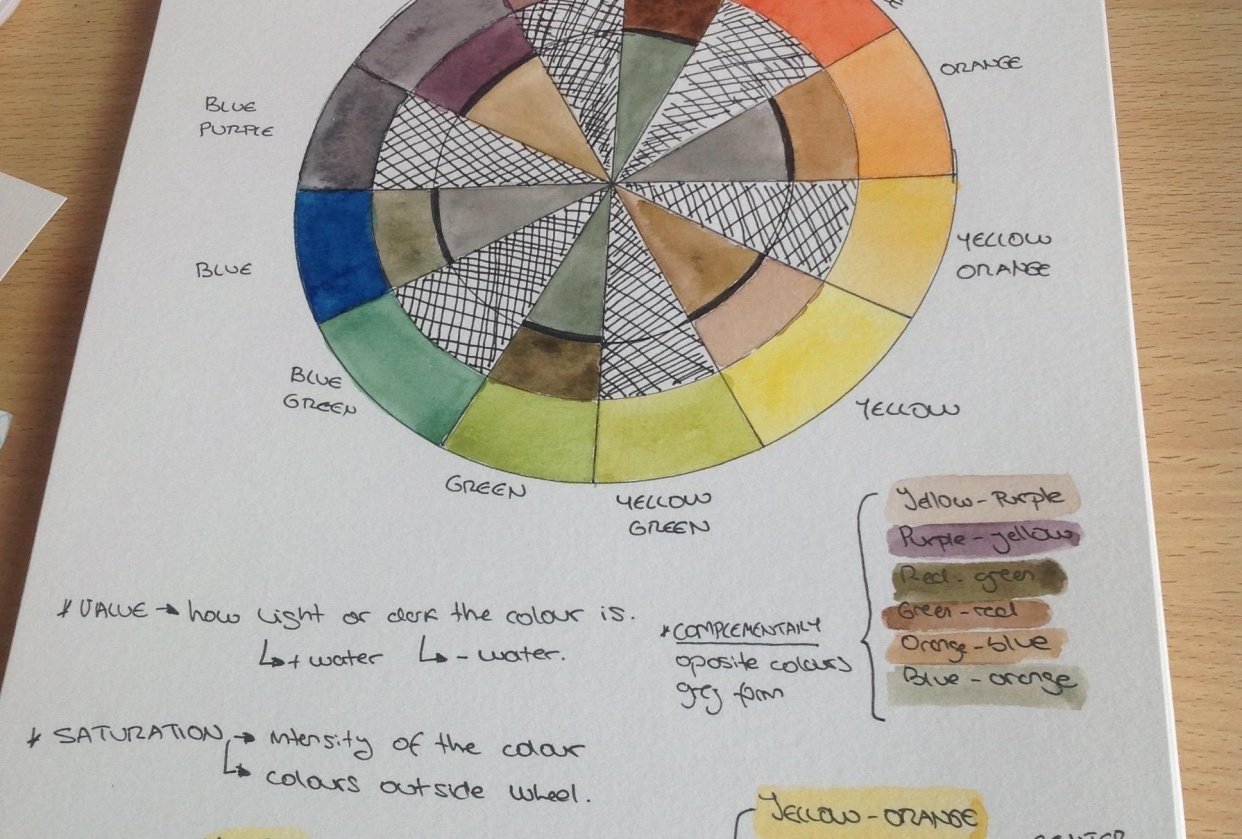 ORANGE
BLUE
PURPLE
YELLOW
ORANGE
BLUE
BLUE
GREEN
YELLOW
GREEN
YELLOW
GREEN
Yellow-Purple
Purple-yellow
Red-green
Green-red
Orange-blue
Blue-orange
* VALUE → how light or dark the colour is.
↳ + water ↳ - water.
* COMPLEMENTARY
oposite colours
grey form
* SATURATION → intensity of the colour
↳ colours outside wheel.
YELLOW-ORANGE